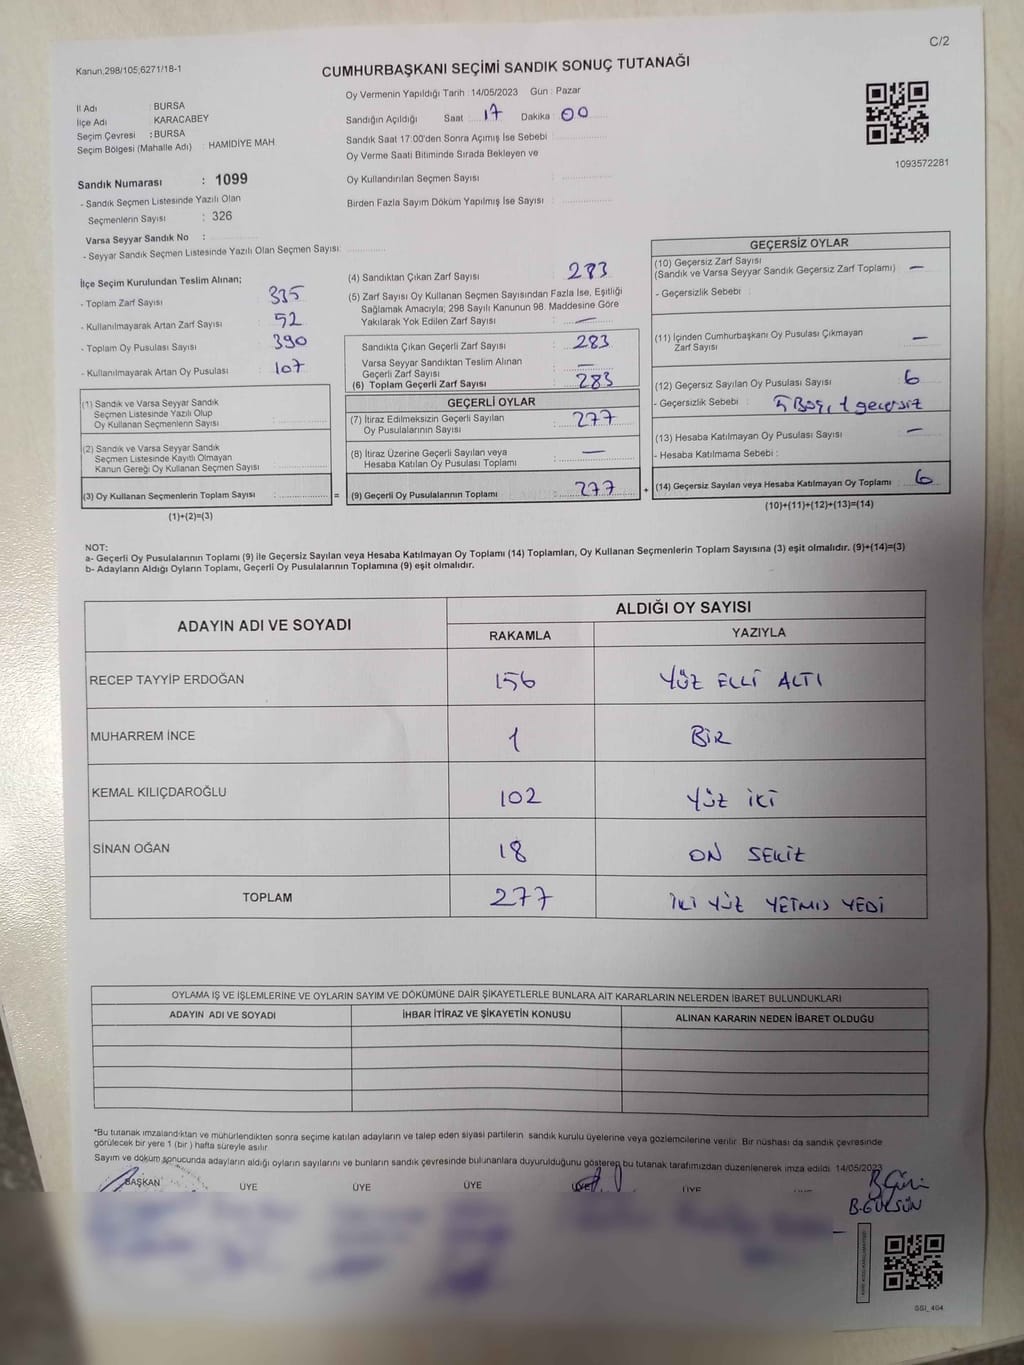 C/2
Kanun,298/105,6271/18-1
CUMHURBAŞKANI SEÇİMİ SANDIK SONUÇ TUTANAĞI
İl Adı : BURSA
İlçe Adı : KARACABEY
Seçim Çevresi : BURSA
Seçim Bölgesi (Mahalle Adı) : HAMIDİYE MAH.
Oy Vermenin Yapıldığı Tarih : 14/05/2023 Gün : Pazar
Sandığın Açıldığı Saat : 17 Dakika 00
Sandık Saat 17:00'den Sonra Açımış İse Sebebi :
Oy Verme Saati Bitiminde Sırada Bekleyen ve
Oy Kullandırılan Seçmen Sayısı :
Birden Fazla Sayım Döküm Yapılmış İse Sayısı :
1093572281
Sandık Numarası : 1099
- Sandık Seçmen Listesinde Yazılı Olan
Seçmenlerin Sayısı : 326
Varsa Seyyar Sandık No :
- Seyyar Sandık Seçmen Listesinde Yazılı Olan Seçmen Sayısı:
İlçe Seçim Kurulundan Teslim Alınan;
- Toplam Zarf Sayısı : 335
- Kullanılmayarak Artan Zarf Sayısı : 52
- Toplam Oy Pusulası Sayısı : 390
- Kullanılmayarak Artan Oy Pusulası : 107
(1) Sandık ve Varsa Seyyar Sandık
Seçmen Listesinde Yazılı Olup
Oy Kullanan Seçmenlerin Sayısı :
(2) Sandık ve Varsa Seyyar Sandık
Seçmen Listesinde Kayıtlı Olmayan
Kanun Gereği Oy Kullanan Seçmen Sayısı :
(3) Oy Kullanan Seçmenlerin Toplam Sayısı : =
(1)+(2)=(3)
(4) Sandıktan Çıkan Zarf Sayısı : 283
(5) Zarf Sayısı Oy Kullanan Seçmen Sayısından Fazla İse, Eşitliği
Sağlamak Amacıyla; 298 Sayılı Kanunun 98. Maddesine Göre
Yakılarak Yok Edilen Zarf Sayısı : —
Sandıkta Çıkan Geçerli Zarf Sayısı : 283
Varsa Seyyar Sandıktan Teslim Alınan
Geçerli Zarf Sayısı : —
(6) Toplam Geçerli Zarf Sayısı : 283
GEÇERLİ OYLAR
(7) İtiraz Edilmeksizin Geçerli Sayılan
Oy Pusulalarının Sayısı : 277
(8) İtiraz Üzerine Geçerli Sayılan veya
Hesaba Katılan Oy Pusulası Toplamı : —
(9) Geçerli Oy Pusulalarının Toplamı : 277 +
GEÇERSİZ OYLAR
(10) Geçersiz Zarf Sayısı
(Sandık ve Varsa Seyyar Sandık Geçersiz Zarf Toplamı) : —
- Geçersizlik Sebebi :
(11) İçinden Cumhurbaşkanı Oy Pusulası Çıkmayan
Zarf Sayısı : —
(12) Geçersiz Sayılan Oy Pusulası Sayısı : 6
- Geçersizlik Sebebi : 5 Boş, 1 geçersiz
(13) Hesaba Katılmayan Oy Pusulası Sayısı : —
- Hesaba Katılmama Sebebi :
(14) Geçersiz Sayılan veya Hesaba Katılmayan Oy Toplamı : 6
(10)+(11)+(12)+(13)=(14)
NOT:
a- Geçerli Oy Pusulalarının Toplamı (9) ile Geçersiz Sayılan veya Hesaba Katılmayan Oy Toplamı (14) Toplamları, Oy Kullanan Seçmenlerin Toplam Sayısına (3) eşit olmalıdır. (9)+(14)=(3)
b- Adayların Aldığı Oyların Toplamı, Geçerli Oy Pusulalarının Toplamına (9) eşit olmalıdır.
ADAYIN ADI VE SOYADI
ALDIĞI OY SAYISI
RAKAMLA YAZIYLA
RECEP TAYYİP ERDOĞAN 156 YÜZ ELLİ ALTI
MUHARREM İNCE 1 BİR
KEMAL KILIÇDAROĞLU 102 YÜZ İKİ
SİNAN OĞAN 18 ON SEKİZ
TOPLAM 277 İKİ YÜZ YETMİŞ YEDİ
OYLAMA İŞ VE İŞLEMLERİNE VE OYLARIN SAYIM VE DÖKÜMÜNE DAİR ŞİKAYETLERLE BUNLARA AİT KARARLARIN NELERDEN İBARET BULUNDUKLARI
ADAYIN ADI VE SOYADI İHBAR İTİRAZ VE ŞİKAYETİN KONUSU ALINAN KARARIN NEDEN İBARET OLDUĞU
*Bu tutanak imzalandıktan ve mühürlendikten sonra seçime katılan adayların ve talep eden siyasi partilerin sandık kurulu üyelerine veya gözlemcilerine verilir. Bir nüshası da sandık çevresinde
görülecek bir yere 1 (bir) hafta süreyle asılır
Sayım ve döküm sonucunda adayların aldığı oyların sayılarını ve bunların sandık çevresinde bulunanlara duyurulduğunu gösteren bu tutanak tarafımızdan düzenlenerek imza edildi. 14/05/2023
BAŞKAN ÜYE ÜYE ÜYE ÜYE ÜYE
B.GÜLSÜN
GGI_404